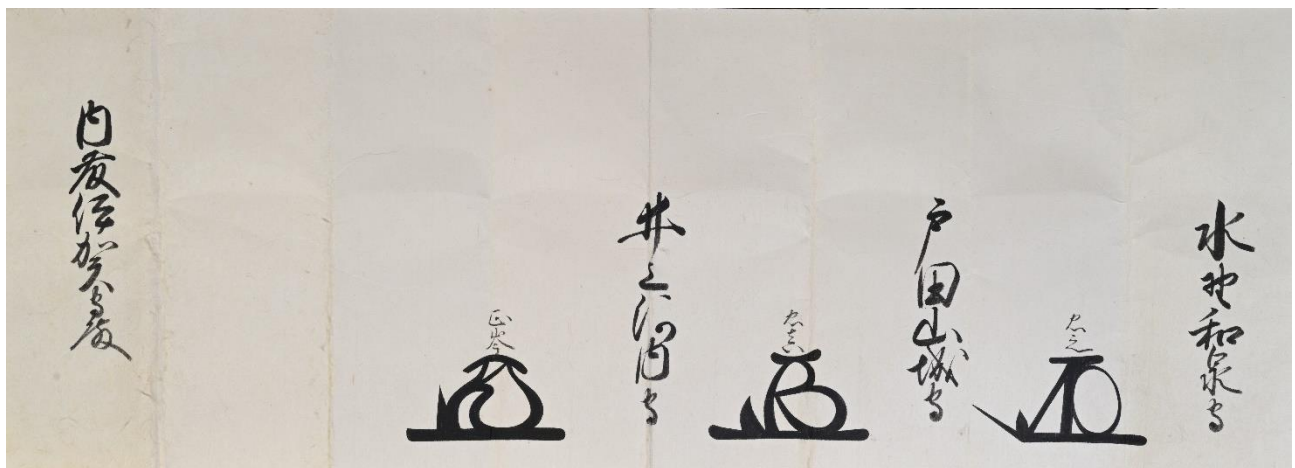 水野和泉守
忠之
戸田山城守
忠真
井上河内守
正岑
内藤伊賀守殿